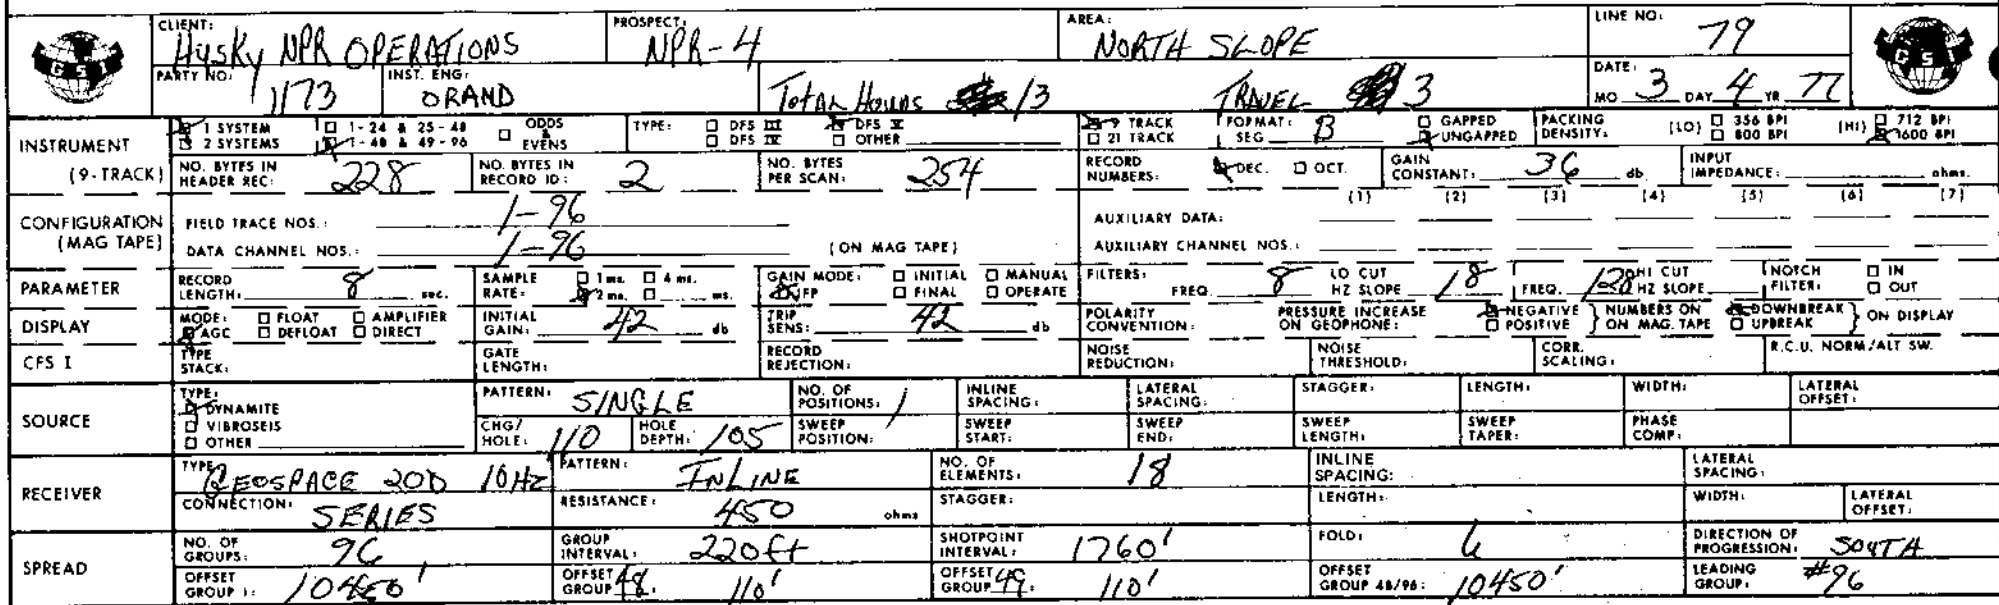 CLIENT: Husky NPR OPERATIONS PROSPECT: NPR-4 AREA: NORTH SLOPE LINE NO: 79
GSI GSI
PARTY NO: 1173 INST. ENG: ORAND Total Hours 13 TRAVEL 3 DATE: MO 3 DAY 4 YR 77
INSTRUMENT (9-TRACK)
1 SYSTEM 1-24 & 25-48 ODDS & EVENS TYPE: DFS III DFS V 9 TRACK FORMAT: SEG B GAPPED PACKING DENSITY: (LO) 356 BPI (HI) 712 BPI
2 SYSTEMS 1-48 & 49-96 DFS IV OTHER 21 TRACK UNGAPPED 800 BPI 1600 BPI
NO. BYTES IN HEADER REC: 228 NO. BYTES IN RECORD ID: 2 NO. BYTES PER SCAN: 254 RECORD NUMBERS: DEC. OCT. GAIN CONSTANT: 36 db. INPUT IMPEDANCE: ohms.
CONFIGURATION (MAG TAPE)
(1) (2) (3) (4) (5) (6) (7)
FIELD TRACE NOS.: 1-96 AUXILIARY DATA:
DATA CHANNEL NOS.: 1-96 (ON MAG TAPE) AUXILIARY CHANNEL NOS.:
PARAMETER RECORD LENGTH: 8 sec. SAMPLE RATE: 1 ms. 4 ms. 2 ms. ms. GAIN MODE: INITIAL MANUAL IFP FINAL OPERATE FILTERS: FREQ. 8 LO CUT HZ SLOPE 18 FREQ. 128 HI CUT HZ SLOPE NOTCH FILTER: IN OUT
DISPLAY MODE: FLOAT AMPLIFIER AGC DEFLOAT DIRECT INITIAL GAIN: 42 db TRIP SENS: 42 db POLARITY CONVENTION: PRESSURE INCREASE ON GEOPHONE: NEGATIVE POSITIVE } NUMBERS ON MAG. TAPE DOWNBREAK UPBREAK } ON DISPLAY
CFS I TYPE STACK: GATE LENGTH: RECORD REJECTION: NOISE REDUCTION: NOISE THRESHOLD: CORR. SCALING: R.C.U. NORM/ALT SW.
SOURCE TYPE: DYNAMITE VIBROSEIS OTHER
PATTERN: SINGLE NO. OF POSITIONS: 1 INLINE SPACING: LATERAL SPACING: STAGGER: LENGTH: WIDTH: LATERAL OFFSET:
CHG/HOLE: 110 HOLE DEPTH: 105 SWEEP POSITION: SWEEP START: SWEEP END: SWEEP LENGTH: SWEEP TAPER: PHASE COMP:
RECEIVER TYPE: GEOSPACE 20D 10HZ PATTERN: INLINE NO. OF ELEMENTS: 18 INLINE SPACING: LATERAL SPACING:
CONNECTION: SERIES RESISTANCE: 450 ohms STAGGER: LENGTH: WIDTH: LATERAL OFFSET:
SPREAD NO. OF GROUPS: 96 GROUP INTERVAL: 220 ft SHOTPOINT INTERVAL: 1760' FOLD: 6 DIRECTION OF PROGRESSION: SOUTH
OFFSET GROUP 1: 10450' OFFSET GROUP 48: 110' OFFSET GROUP 49: 110' OFFSET GROUP 48/96: 10450' LEADING GROUP: #96